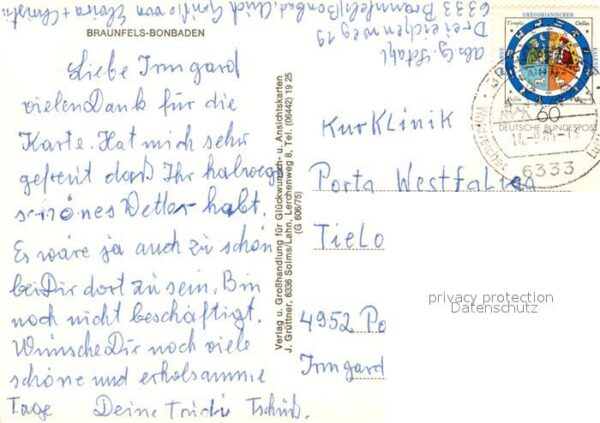 BRAUNFELS-BONBADEN
Liebe Irmgard
vielen Dank für die
Karte. Hat mich sehr
gefreut daß Ihr halbwegs
schönes Wetter habt.
Es wäre ja auch zu schön
bei Dir dort zu sein. Bin
noch nicht beschäftigt.
Wünsche Dir noch viele
schöne und erholsamme
Tage Deine Trudi Tschüß.
Verlag u. Großhandlung für Glückwunsch- u. Ansichtskarten
J. Grüttner, 6336 Solms/Lahn, Lerchenweg 8, Tel. (06442) 19 25
(G 606/75)
Abs. G.
Dreieichenweg 19
6333 Braunfels/Bonbaden, Auch Grüße von
GREGORIANISCHER
60
DEUTSCHE BUNDESPOST
6333
Kurklinik
Porta Westfalica
Tielo
4952 Po
Irmgard
privacy protection
Datenschutz